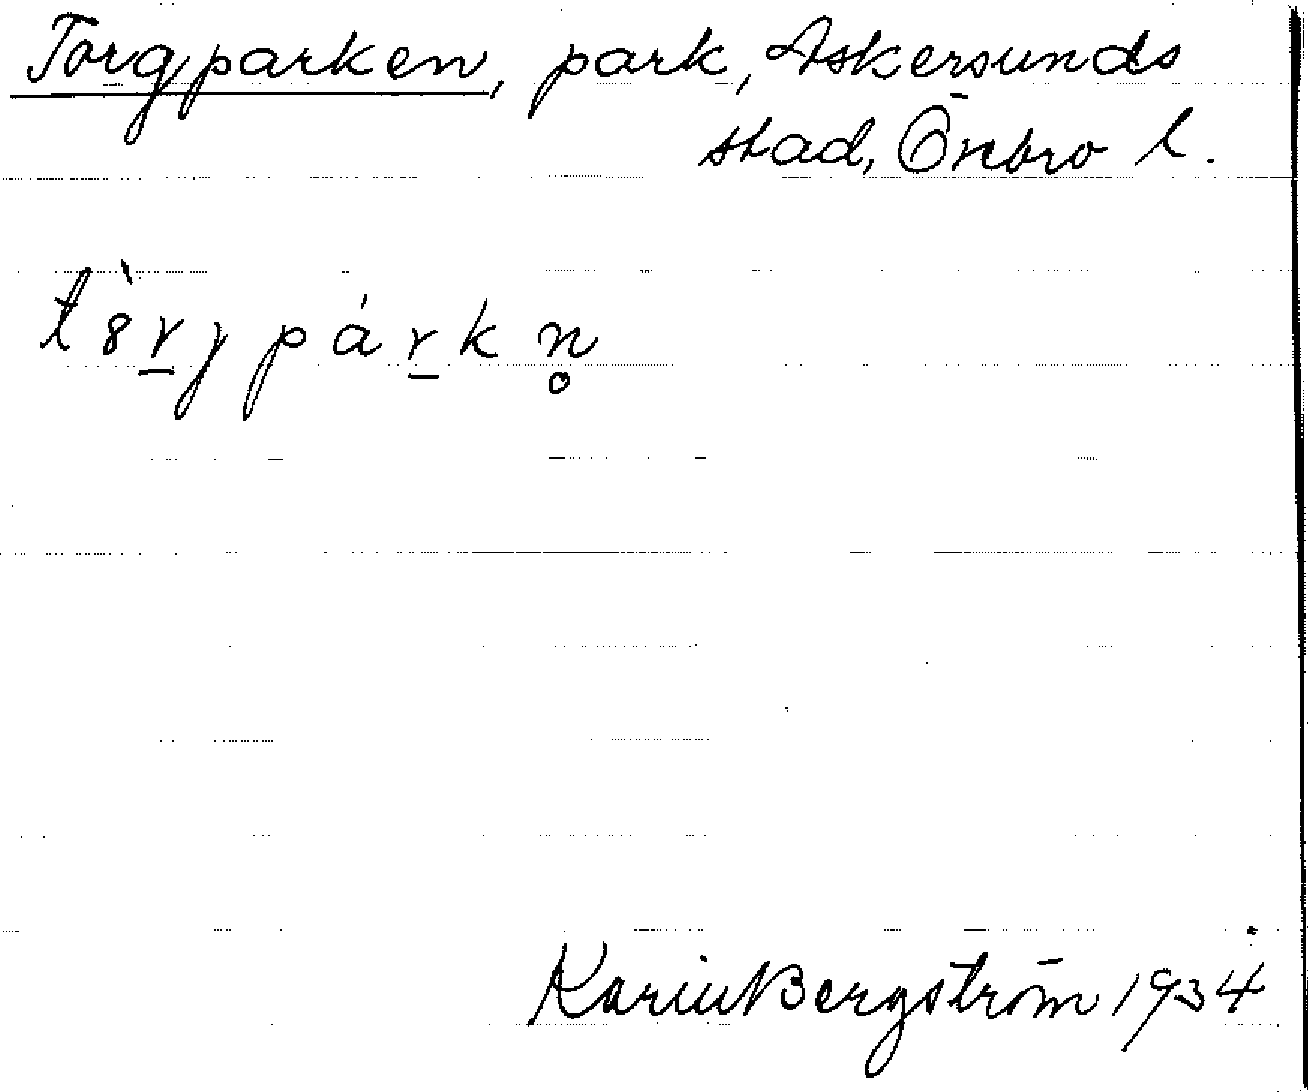 Torgparken, park, Askersunds
stad, Örebro l.
t8̀r̲ȷpár̲kn̥
Karin Bergström 1934